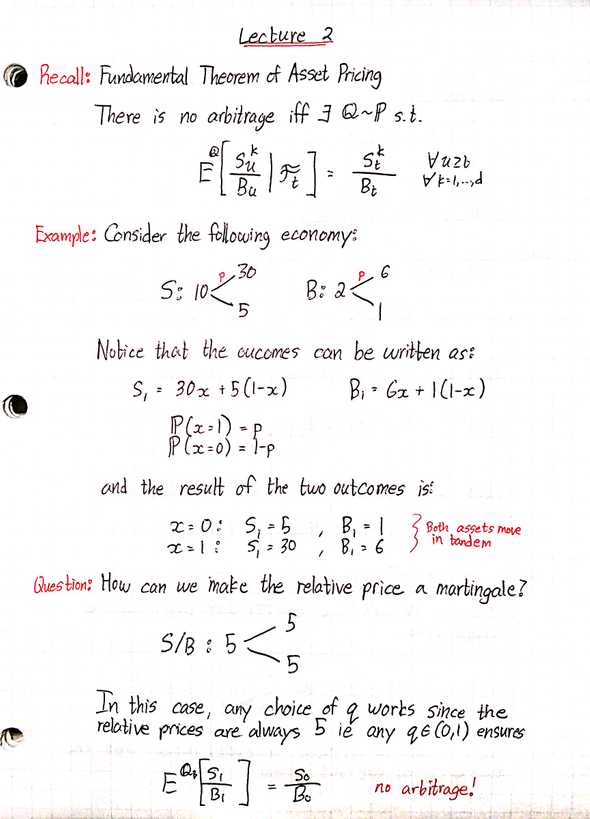 Lecture 2
Recall: Fundamental Theorem of Asset Pricing
There is no arbitrage iff ∃ Q~P s.t.
E^Q[ S_u^k / B_u | F_t ] = S_t^k / B_t ∀u≥t ∀k=1,...,d
Example: Consider the following economy:
S: 10 p 30 5 B: 2 p 6 1
Notice that the oucomes can be written as:
S₁ = 30x + 5(1-x) B₁ = 6x + 1(1-x)
P(x=1) = p
P(x=0) = 1-p
and the result of the two outcomes is:
x=0: S₁ = 5 , B₁ = 1
x=1: S₁ = 30 , B₁ = 6
} Both assets move
in tandem
Question: How can we make the relative price a martingale?
S/B: 5 5 5
In this case, any choice of q works since the
relative prices are always 5 ie any q∈(0,1) ensures
E^Q[ S₁ / B₁ ] = S₀ / B₀ no arbitrage!